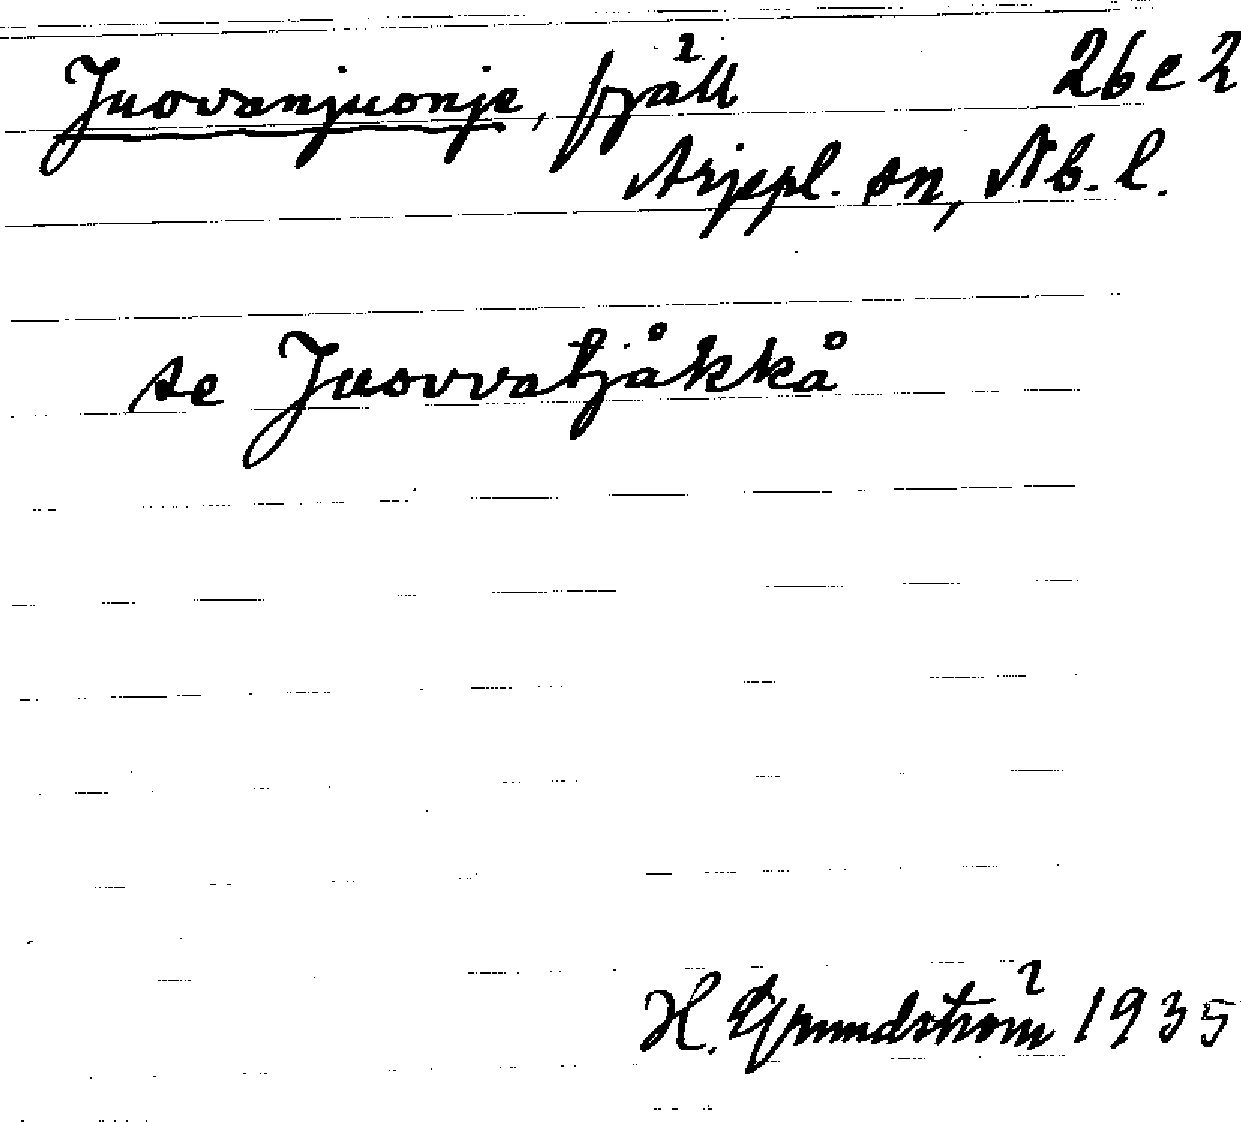 Juovanjuonje, fjäll 26 e 2
Arjepl. sn, Nb. l.
se Juovvatjåkkå
H. Grundström 1935